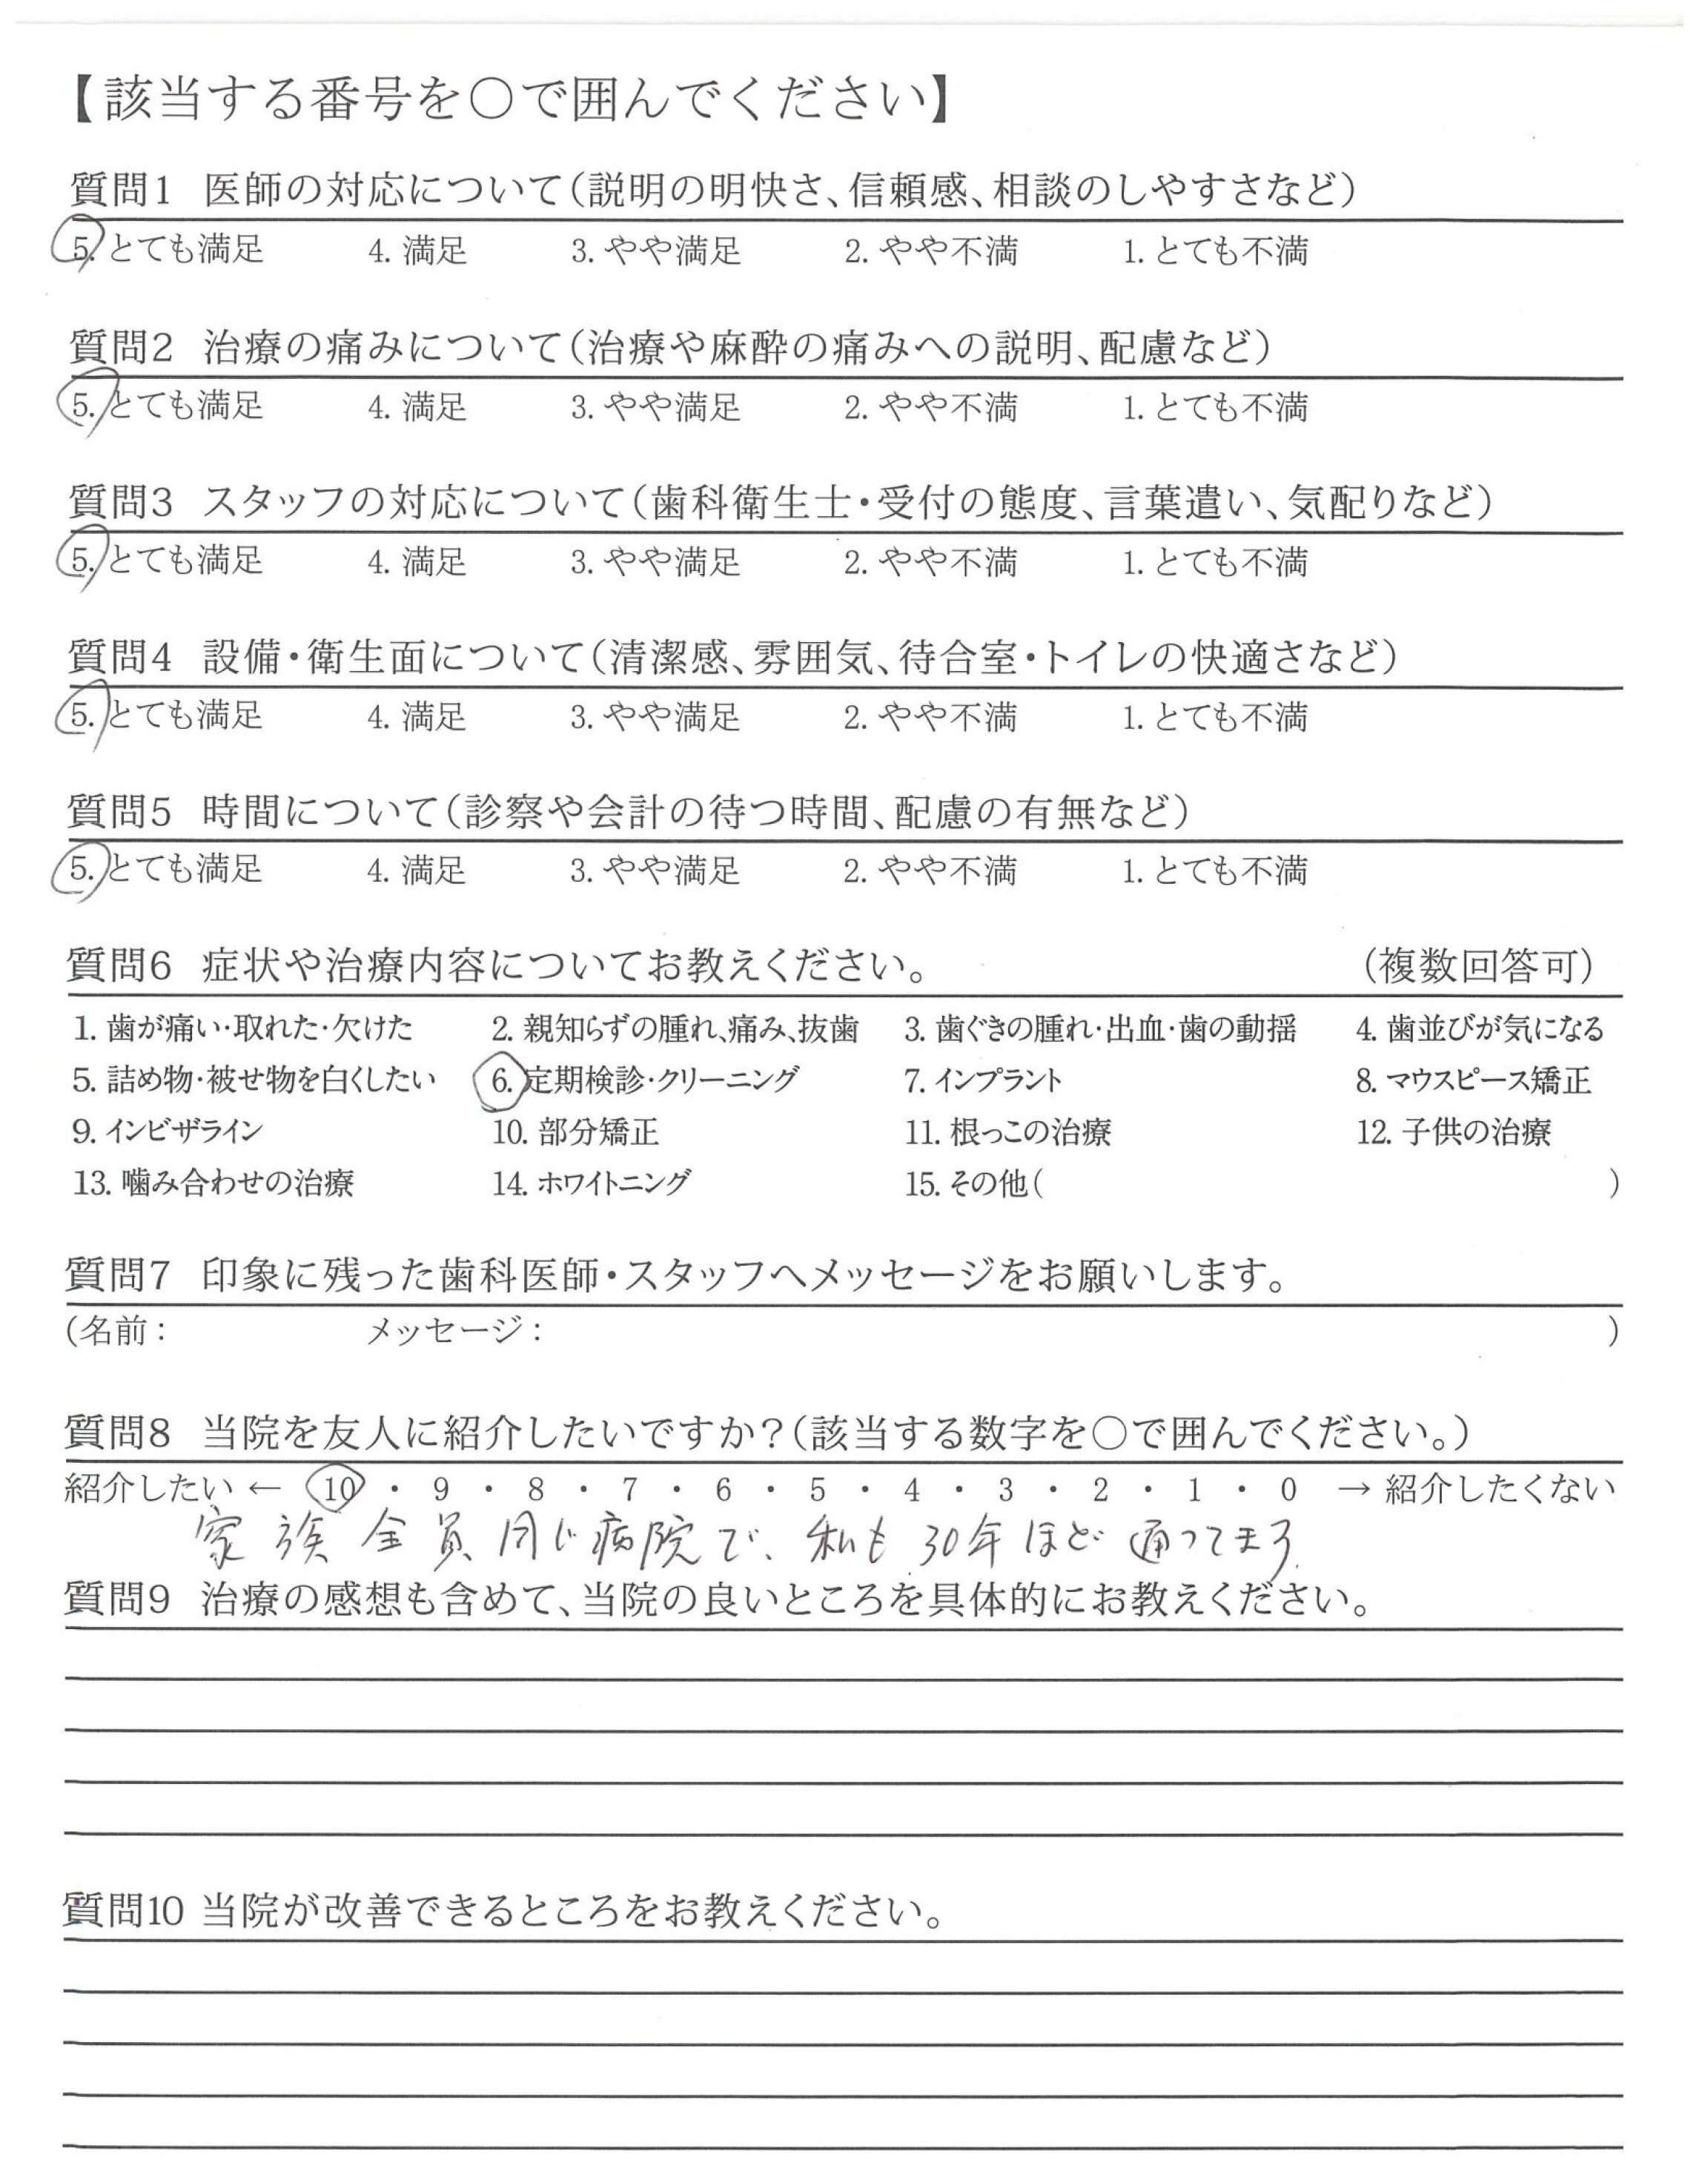 【該当する番号を〇で囲んでください】
質問1 医師の対応について(説明の明快さ、信頼感、相談のしやすさなど)
5. とても満足 4. 満足 3. やや満足 2. やや不満 1. とても不満
質問2 治療の痛みについて(治療や麻酔の痛みへの説明、配慮など)
5. とても満足 4. 満足 3. やや満足 2. やや不満 1. とても不満
質問3 スタッフの対応について(歯科衛生士・受付の態度、言葉遣い、気配りなど)
5. とても満足 4. 満足 3. やや満足 2. やや不満 1. とても不満
質問4 設備・衛生面について(清潔感、雰囲気、待合室・トイレの快適さなど)
5. とても満足 4. 満足 3. やや満足 2. やや不満 1. とても不満
質問5 時間について(診察や会計の待つ時間、配慮の有無など)
5. とても満足 4. 満足 3. やや満足 2. やや不満 1. とても不満
質問6 症状や治療内容についてお教えください。 (複数回答可)
1. 歯が痛い・取れた・欠けた 2. 親知らずの腫れ、痛み、抜歯 3. 歯ぐきの腫れ・出血・歯の動揺 4. 歯並びが気になる
5. 詰め物・被せ物を白くしたい 6. 定期検診・クリーニング 7. インプラント 8. マウスピース矯正
9. インビザライン 10. 部分矯正 11. 根っこの治療 12. 子供の治療
13. 噛み合わせの治療 14. ホワイトニング 15. その他( )
質問7 印象に残った歯科医師・スタッフへメッセージをお願いします。
(名前: メッセージ: )
質問8 当院を友人に紹介したいですか?(該当する数字を〇で囲んでください。)
紹介したい ← 10 ・ 9 ・ 8 ・ 7 ・ 6 ・ 5 ・ 4 ・ 3 ・ 2 ・ 1 ・ 0 → 紹介したくない
家族全員同じ病院で、私も30年ほど通ってます。
質問9 治療の感想も含めて、当院の良いところを具体的にお教えください。
質問10 当院が改善できるところをお教えください。